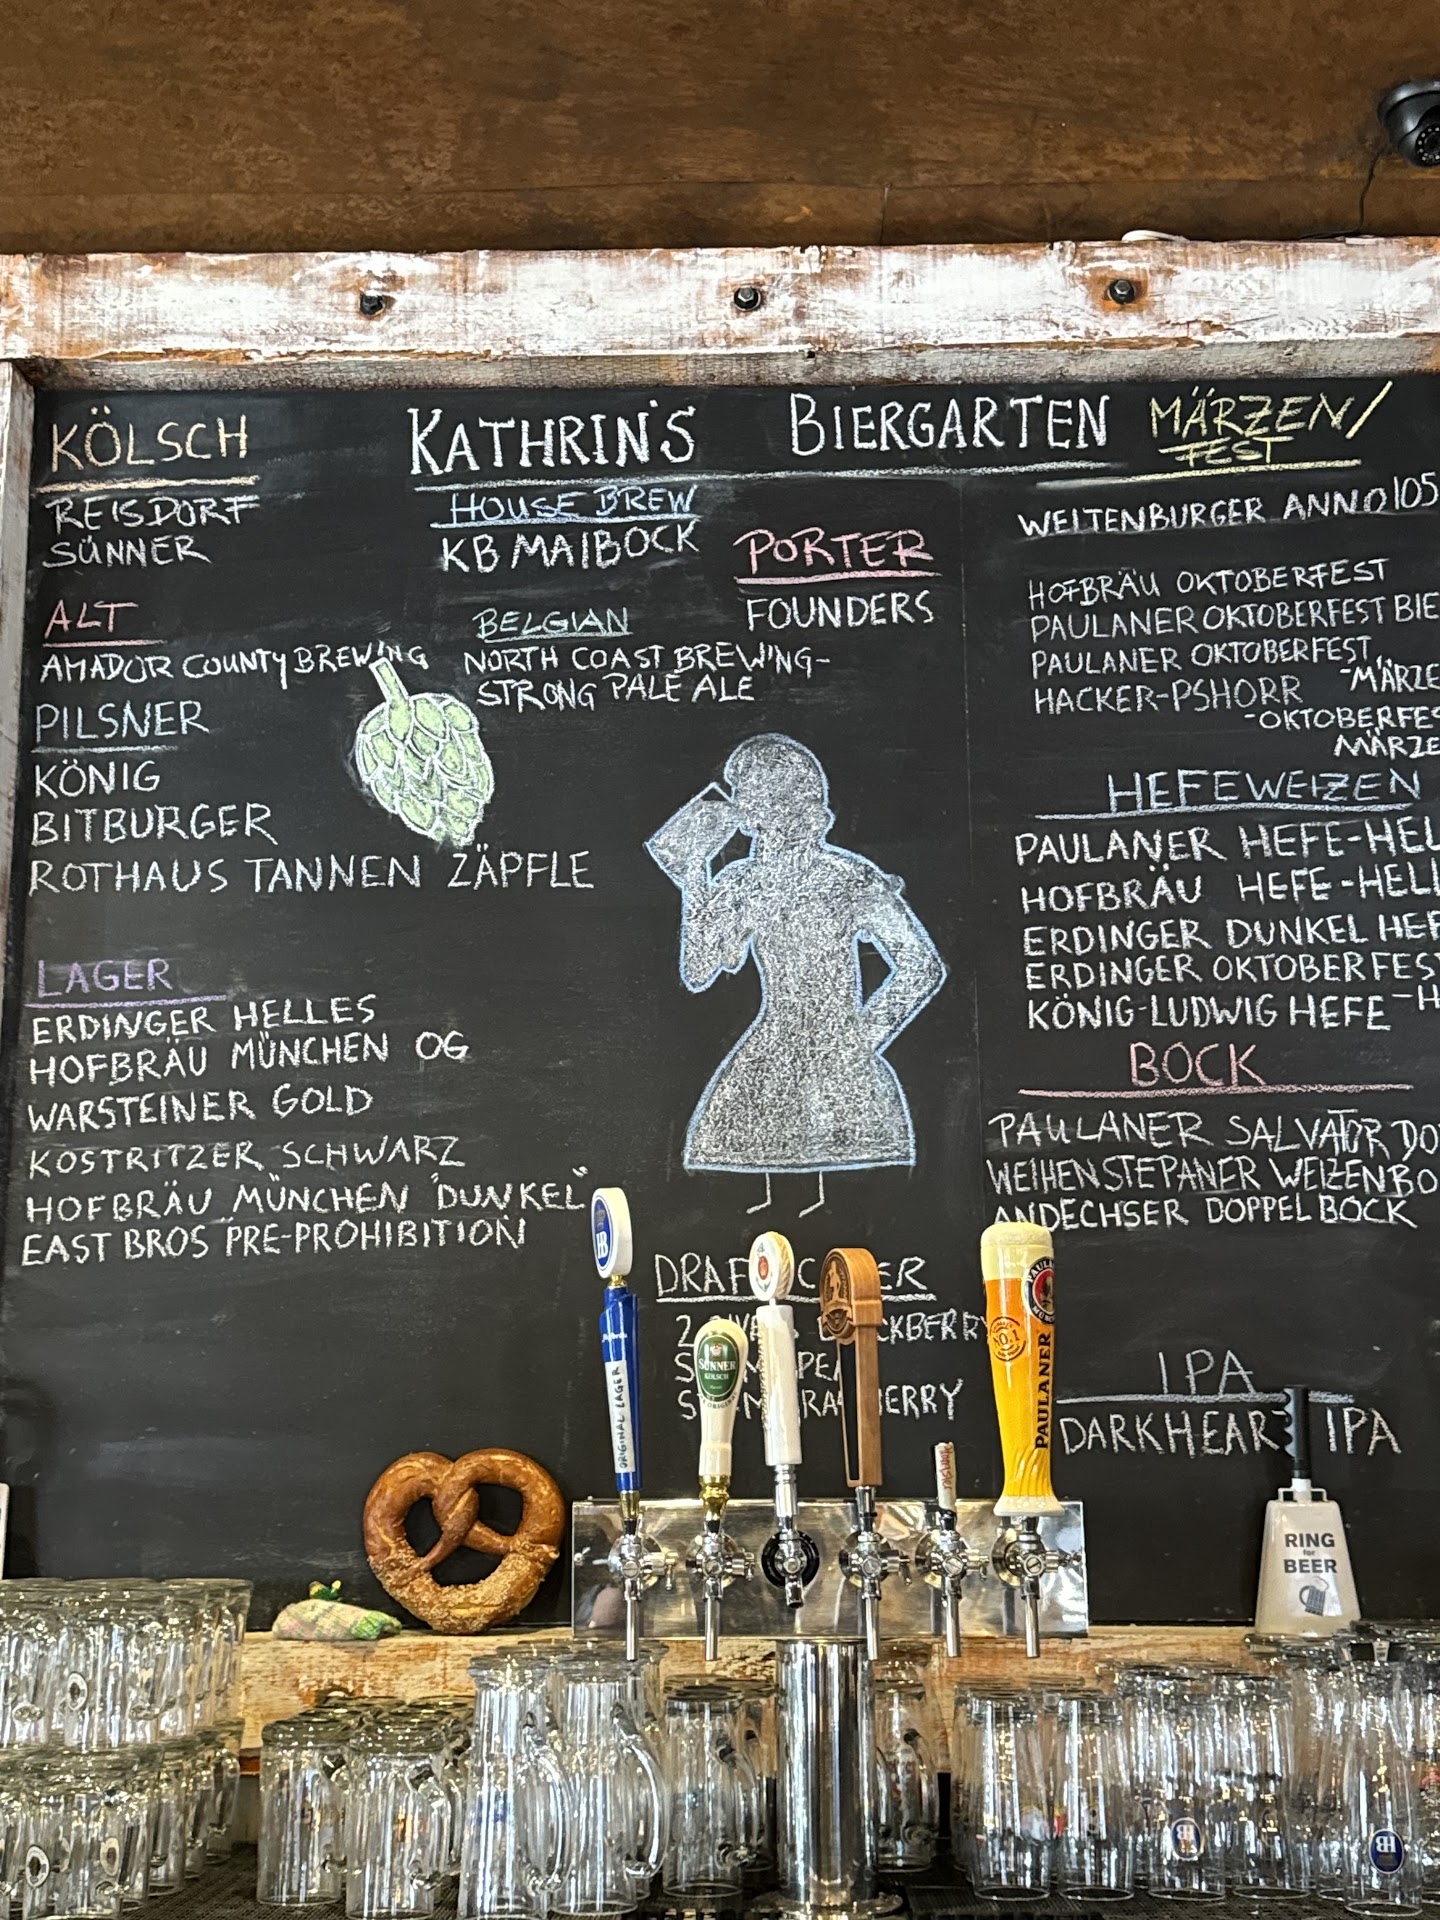 KÖLSCH
REISDORF
SÜNNER
ALT
AMADOR COUNTY BREWING
PILSNER
KÖNIG
BITBURGER
ROTHAUS TANNEN ZÄPFLE
LAGER
ERDINGER HELLES
HOFBRÄU MÜNCHEN OG
WARSTEINER GOLD
KOSTRITZER SCHWARZ
HOFBRÄU MÜNCHEN "DUNKEL"
EAST BROS PRE-PROHIBITION
KATHRIN'S BIERGARTEN
HOUSE BREW
KB MAIBOCK
PORTER
FOUNDERS
BELGIAN
NORTH COAST BREWING-
STRONG PALE ALE
MÄRZEN/
FEST
WELTENBURGER ANNO 105
HOFBRÄU OKTOBERFEST
PAULANER OKTOBERFEST BIE
PAULANER OKTOBERFEST
-MÄRZE
HACKER-PSHORR
-OKTOBERFES
MÄRZE
HEFEWEIZEN
PAULANER HEFE-HEL
HOFBRÄU HEFE-HELL
ERDINGER DUNKEL HEF
ERDINGER OKTOBERFEST
KÖNIG-LUDWIG HEFE -H
BOCK
PAULANER SALVATOR DO
WEIHENSTEPANER WEIZENBO
ANDECHSER DOPPELBOCK
IPA
DARKHEART IPA
HB
ORIGINAL LAGER
SÜNNER
KÖLSCH
PAULANER
MÜNCHEN
NO.1
PAULANER
RING
for
BEER
HB
HB